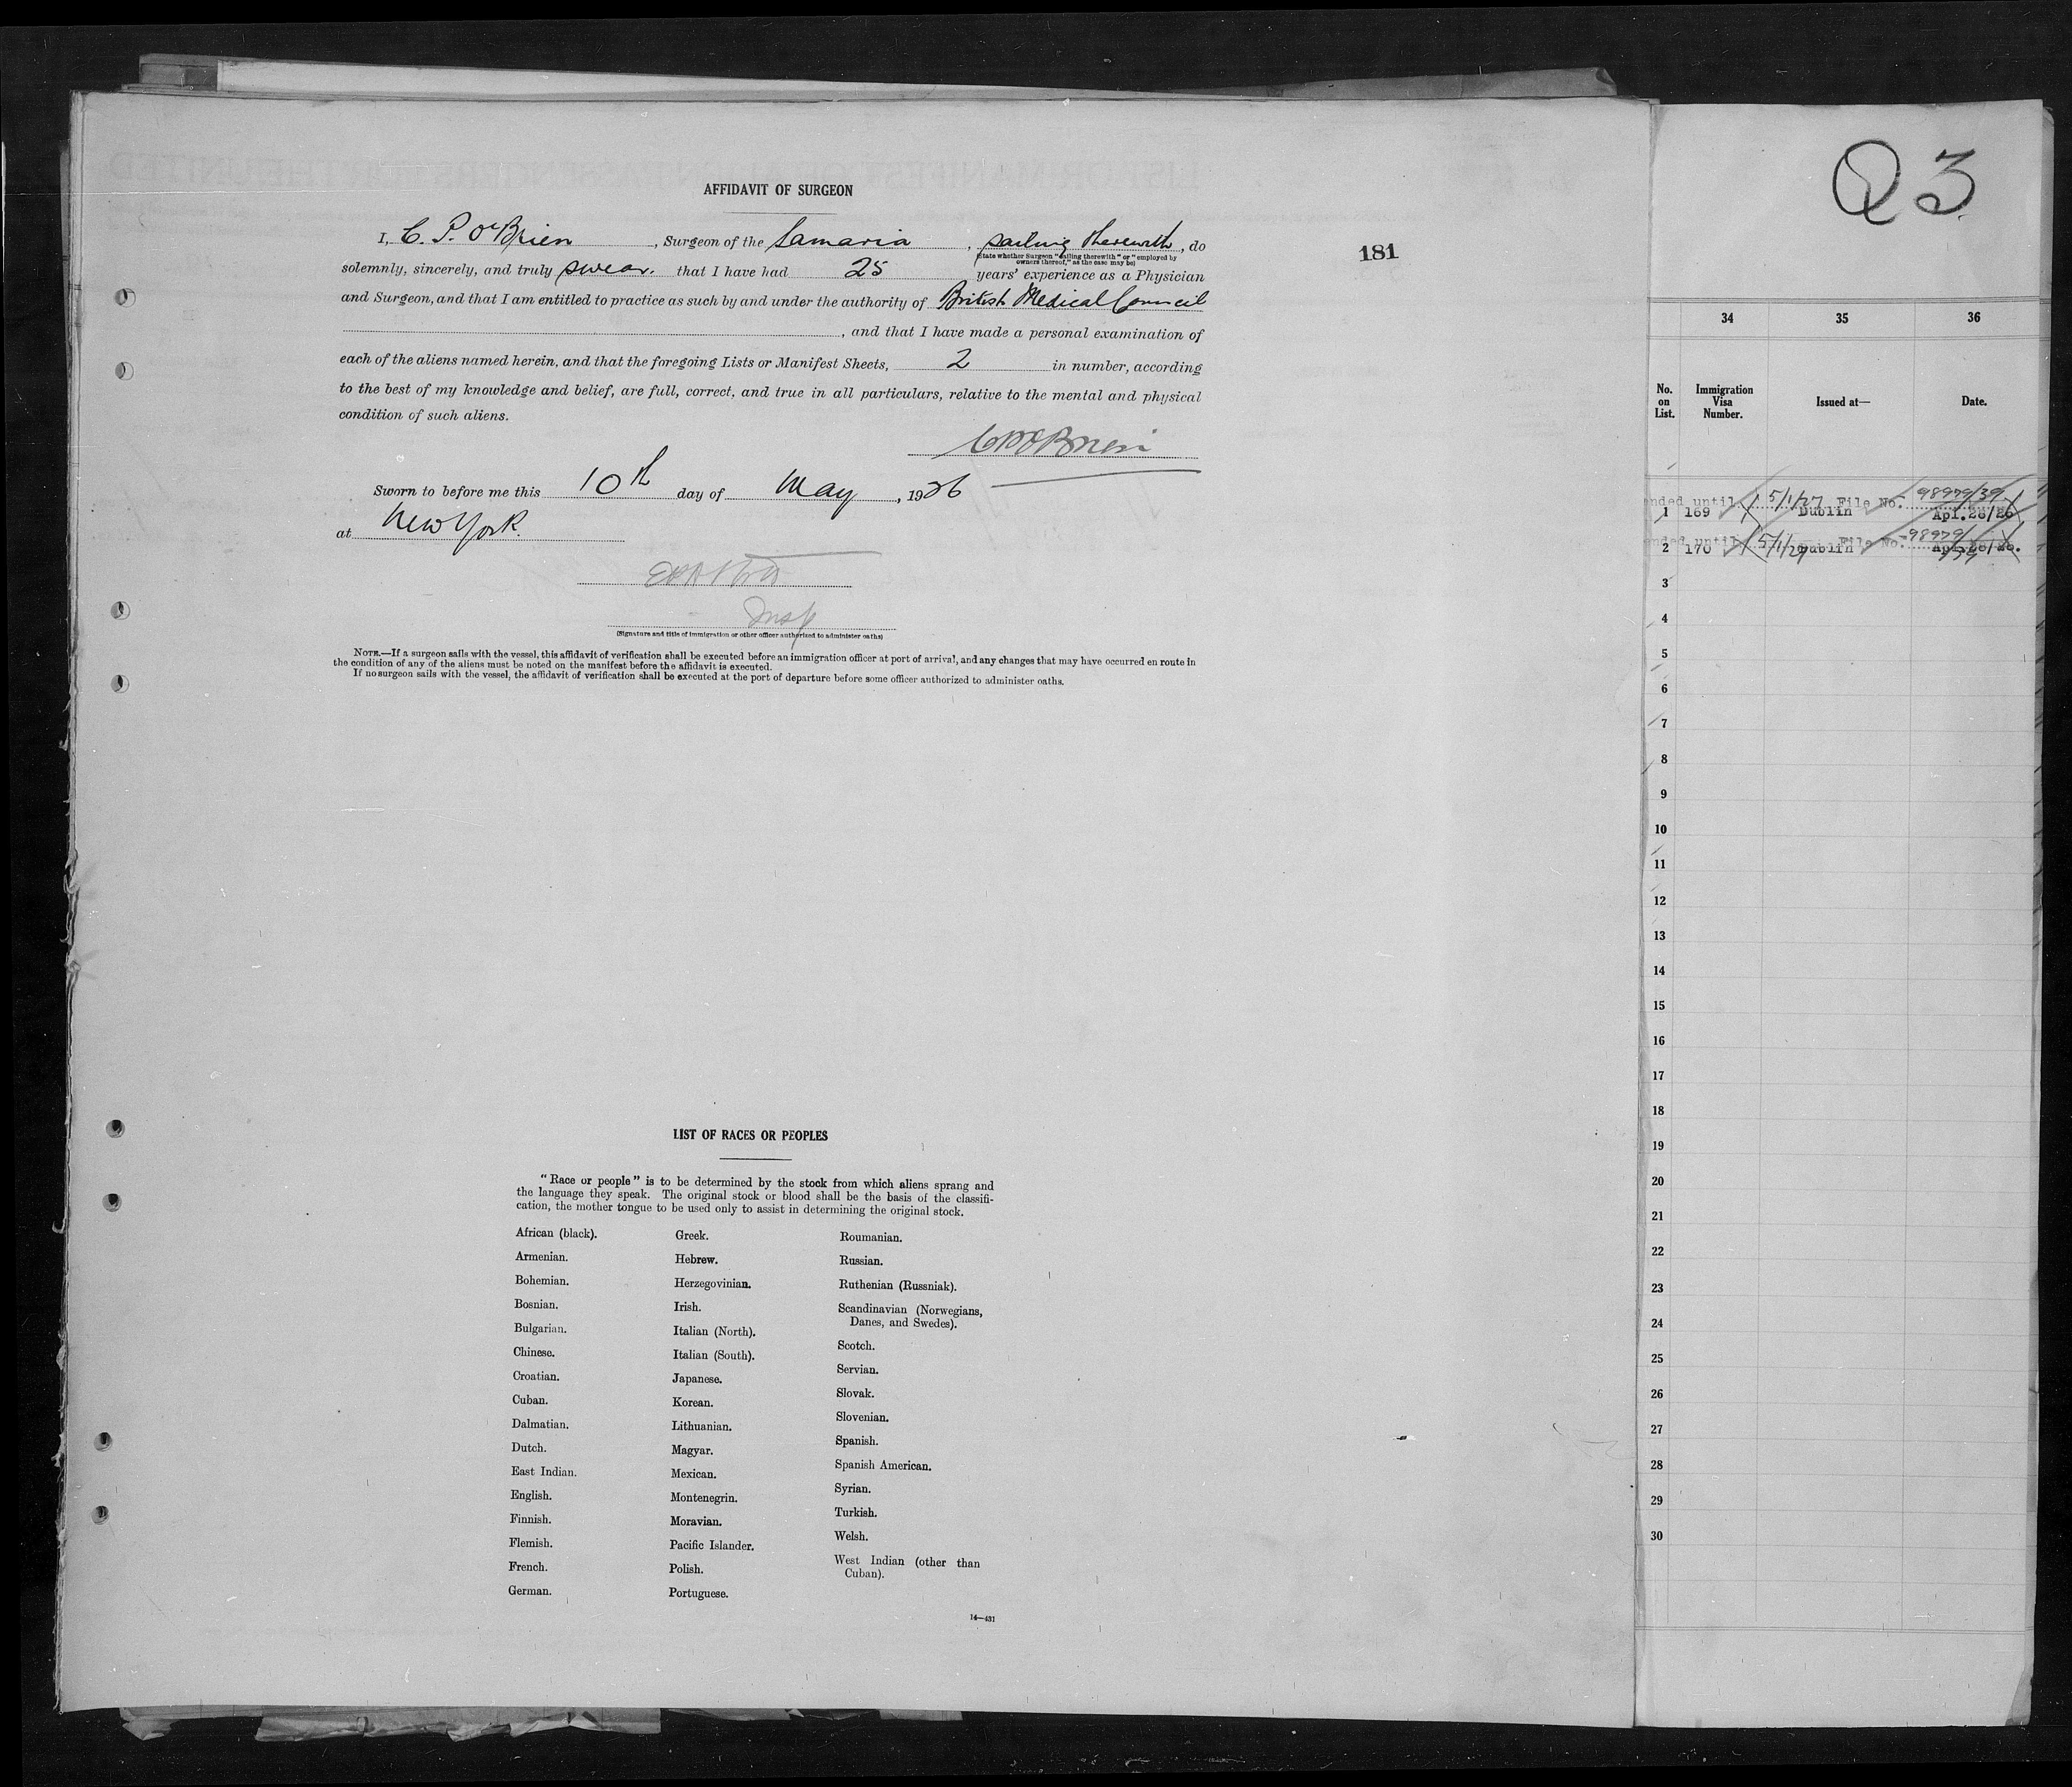 AFFIDAVIT OF SURGEON
I, C. P. O'Brien, Surgeon of the Samaria, sailing therewith, do
(State whether Surgeon "sailing therewith" or "employed by
owners thereof," as the case may be)
solemnly, sincerely, and truly swear. that I have had 25 years' experience as a Physician
and Surgeon, and that I am entitled to practice as such by and under the authority of British Medical Council
, and that I have made a personal examination of
each of the aliens named herein, and that the foregoing Lists or Manifest Sheets, 2 in number, according
to the best of my knowledge and belief, are full, correct, and true in all particulars, relative to the mental and physical
condition of such aliens.
CPO'Brien
Sworn to before me this 10th day of May, 1926
at New York.
Insp
(Signature and title of immigration or other officer authorized to administer oaths)
NOTE.—If a surgeon sails with the vessel, this affidavit of verification shall be executed before an immigration officer at port of arrival, and any changes that may have occurred en route in
the condition of any of the aliens must be noted on the manifest before the affidavit is executed.
If no surgeon sails with the vessel, the affidavit of verification shall be executed at the port of departure before some officer authorized to administer oaths.
181
LIST OF RACES OR PEOPLES
"Race or people" is to be determined by the stock from which aliens sprang and
the language they speak. The original stock or blood shall be the basis of the classifi-
cation, the mother tongue to be used only to assist in determining the original stock.
African (black).
Armenian.
Bohemian.
Bosnian.
Bulgarian.
Chinese.
Croatian.
Cuban.
Dalmatian.
Dutch.
East Indian.
English.
Finnish.
Flemish.
French.
German.
Greek.
Hebrew.
Herzegovinian.
Irish.
Italian (North).
Italian (South).
Japanese.
Korean.
Lithuanian.
Magyar.
Mexican.
Montenegrin.
Moravian.
Pacific Islander.
Polish.
Portuguese.
Roumanian.
Russian.
Ruthenian (Russniak).
Scandinavian (Norwegians,
Danes, and Swedes).
Scotch.
Servian.
Slovak.
Slovenian.
Spanish.
Spanish American.
Syrian.
Turkish.
Welsh.
West Indian (other than
Cuban).
14—431
Q3
34 35 36
No. on List. Immigration Visa Number. Issued at— Date.
ended until 5/1/27 File No. 98979/39
1 169 Dublin Apl.28/26
ended until 5/1/27 File No. 98979/
2 170 Dublin Apl.28/26.
3
4
5
6
7
8
9
10
11
12
13
14
15
16
17
18
19
20
21
22
23
24
25
26
27
28
29
30